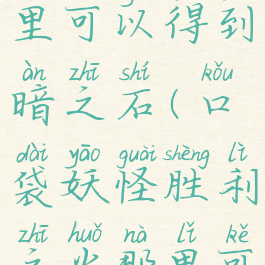 里可以得到
àn zhī shí kǒu
暗之石(口
dài yāo guài shèng lì
袋妖怪胜利
zhī huǒ nà lǐ kě
之火那里可